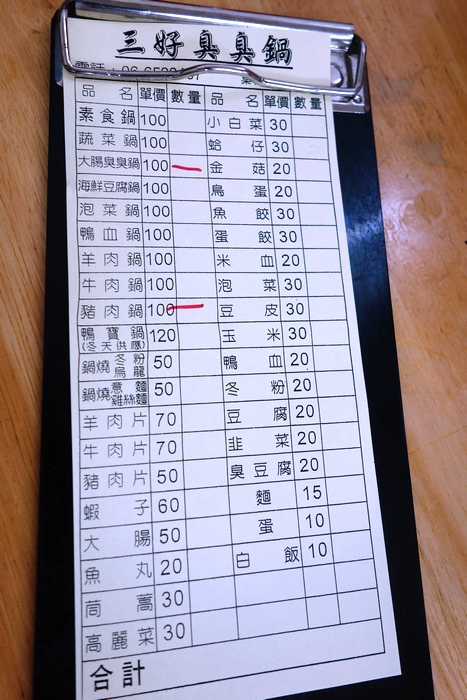 三好臭臭鍋
品名 單價 數量 品名 單價 數量
素食鍋 100 小白菜 30
蔬菜鍋 100 蛤仔 30
大腸臭臭鍋 100 金菇 20
海鮮豆腐鍋 100 鳥蛋 20
泡菜鍋 100 魚餃 30
鴨血鍋 100 蛋餃 30
羊肉鍋 100 米血 20
牛肉鍋 100 泡菜 30
豬肉鍋 100 豆皮 30
鴨寶鍋 (冬天供應) 120 玉米 30
鍋燒 冬粉 烏龍 50 鴨血 20
鍋燒 意麵 雞絲麵 50 冬粉 20
羊肉片 70 豆腐 20
牛肉片 70 韭菜 20
豬肉片 50 臭豆腐 20
蝦子 60 麵 15
大腸 50 蛋 10
魚丸 20 白飯 10
茼蒿 30
高麗菜 30
合計